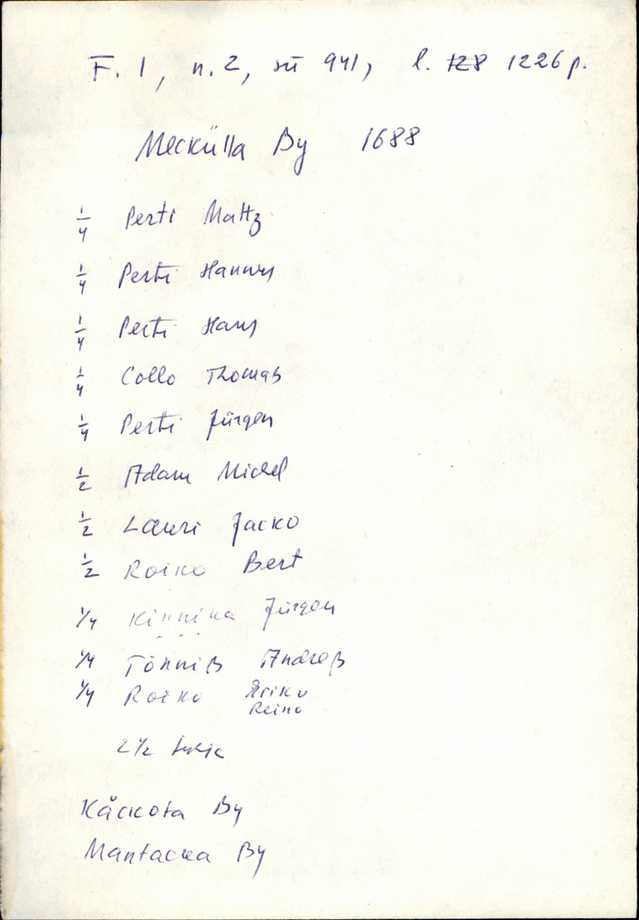 F. 1, n. 2, 941, l. 128 1226 p.
Meckülla By 1688
1/4 Perti Mattz
1/4 Perti Hannus
1/4 Perti Hans
1/4 Collo Thomas
1/4 Perti Jürgen
1/2 Adam Michel
1/2 Lauri Jacko
1/2 Roiko Bert
1/4 Kinnina Jürgen
1/4 Tönniß Andreß
1/4 Roiko
Reino
2 1/2
Kåckota By
Mantacka By